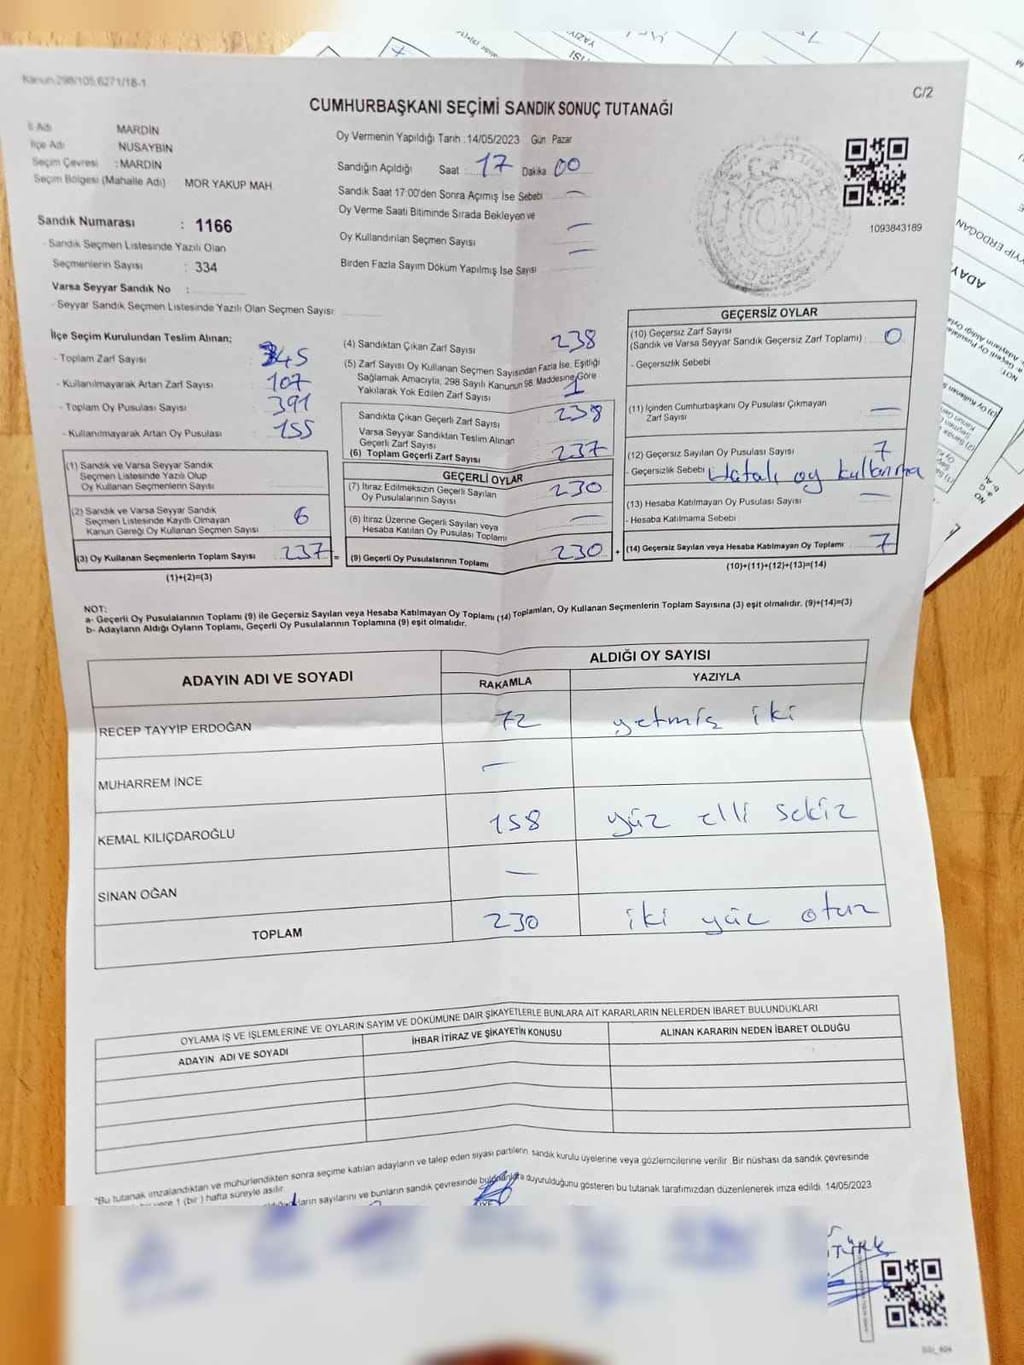 Kanun:298/105,6271/18-1
C/2
CUMHURBAŞKANI SEÇİMİ SANDIK SONUÇ TUTANAĞI
İl Adı MARDİN
İlçe Adı NUSAYBİN
Seçim Çevresi : MARDİN
Seçim Bölgesi (Mahalle Adı) MOR YAKUP MAH
Sandık Numarası : 1166
- Sandık Seçmen Listesinde Yazılı Olan
Seçmenlerin Sayısı : 334
Varsa Seyyar Sandık No :
- Seyyar Sandık Seçmen Listesinde Yazılı Olan Seçmen Sayısı :
Oy Vermenin Yapıldığı Tarih :14/05/2023 Gün Pazar
Sandığın Açıldığı Saat 17 Dakika 00
Sandık Saat 17:00'den Sonra Açımış İse Sebebi —
Oy Verme Saati Bitiminde Sırada Bekleyen ve
Oy Kullandırılan Seçmen Sayısı —
Birden Fazla Sayım Döküm Yapılmış İse Sayısı —
1093843189
İlçe Seçim Kurulundan Teslim Alınan;
- Toplam Zarf Sayısı 345
- Kullanılmayarak Artan Zarf Sayısı 107
- Toplam Oy Pusulası Sayısı 391
- Kullanılmayarak Artan Oy Pusulası 155
(1) Sandık ve Varsa Seyyar Sandık
Seçmen Listesinde Yazılı Olup
Oy Kullanan Seçmenlerin Sayısı
(2) Sandık ve Varsa Seyyar Sandık
Seçmen Listesinde Kayıtlı Olmayan
Kanun Gereği Oy Kullanan Seçmen Sayısı 6
(3) Oy Kullanan Seçmenlerin Toplam Sayısı 237 =
(1)+(2)=(3)
(4) Sandıktan Çıkan Zarf Sayısı 238
(5) Zarf Sayısı Oy Kullanan Seçmen Sayısından Fazla İse, Eşitliği
Sağlamak Amacıyla, 298 Sayılı Kanunun 98. Maddesine Göre
Yakılarak Yok Edilen Zarf Sayısı 1
Sandıkta Çıkan Geçerli Zarf Sayısı 238
Varsa Seyyar Sandıktan Teslim Alınan
Geçerli Zarf Sayısı
(6) Toplam Geçerli Zarf Sayısı 237
GEÇERLİ OYLAR
(7) İtiraz Edilmeksizin Geçerli Sayılan
Oy Pusulalarının Sayısı 230
(8) İtiraz Üzerine Geçerli Sayılan veya
Hesaba Katılan Oy Pusulası Toplamı —
(9) Geçerli Oy Pusulalarının Toplamı 230 +
GEÇERSİZ OYLAR
(10) Geçersiz Zarf Sayısı
(Sandık ve Varsa Seyyar Sandık Geçersiz Zarf Toplamı) : 0
- Geçersizlik Sebebi
(11) İçinden Cumhurbaşkanı Oy Pusulası Çıkmayan
Zarf Sayısı —
(12) Geçersiz Sayılan Oy Pusulası Sayısı 7
- Geçersizlik Sebebi Hatalı oy kullanma
(13) Hesaba Katılmayan Oy Pusulası Sayısı —
- Hesaba Katılmama Sebebi
(14) Geçersiz Sayılan veya Hesaba Katılmayan Oy Toplamı 7
(10)+(11)+(12)+(13)=(14)
NOT:
a- Geçerli Oy Pusulalarının Toplamı (9) ile Geçersiz Sayılan veya Hesaba Katılmayan Oy Toplamı (14) Toplamları, Oy Kullanan Seçmenlerin Toplam Sayısına (3) eşit olmalıdır. (9)+(14)=(3)
b- Adayların Aldığı Oyların Toplamı, Geçerli Oy Pusulalarının Toplamına (9) eşit olmalıdır.
ADAYIN ADI VE SOYADI ALDIĞI OY SAYISI
RAKAMLA YAZIYLA
RECEP TAYYİP ERDOĞAN 72 yetmiş iki
MUHARREM İNCE —
KEMAL KILIÇDAROĞLU 158 yüz elli sekiz
SİNAN OĞAN —
TOPLAM 230 iki yüz otuz
OYLAMA İŞ VE İŞLEMLERİNE VE OYLARIN SAYIM VE DÖKÜMÜNE DAİR ŞİKAYETLERLE BUNLARA AİT KARARLARIN NELERDEN İBARET BULUNDUKLARI
ADAYIN ADI VE SOYADI İHBAR İTİRAZ VE ŞİKAYETİN KONUSU ALINAN KARARIN NEDEN İBARET OLDUĞU
"Bu tutanak imzalandıktan ve mühürlendikten sonra seçime katılan adayların ve talep eden siyasi partilerin sandık kurulu üyelerine veya gözlemcilerine verilir. Bir nüshası da sandık çevresinde
1 (bir) hafta süreyle asılır.
sayılarını ve bunların sandık çevresinde duyurulduğunu gösteren bu tutanak tarafımızdan düzenlenerek imza edildi. 14/05/2023